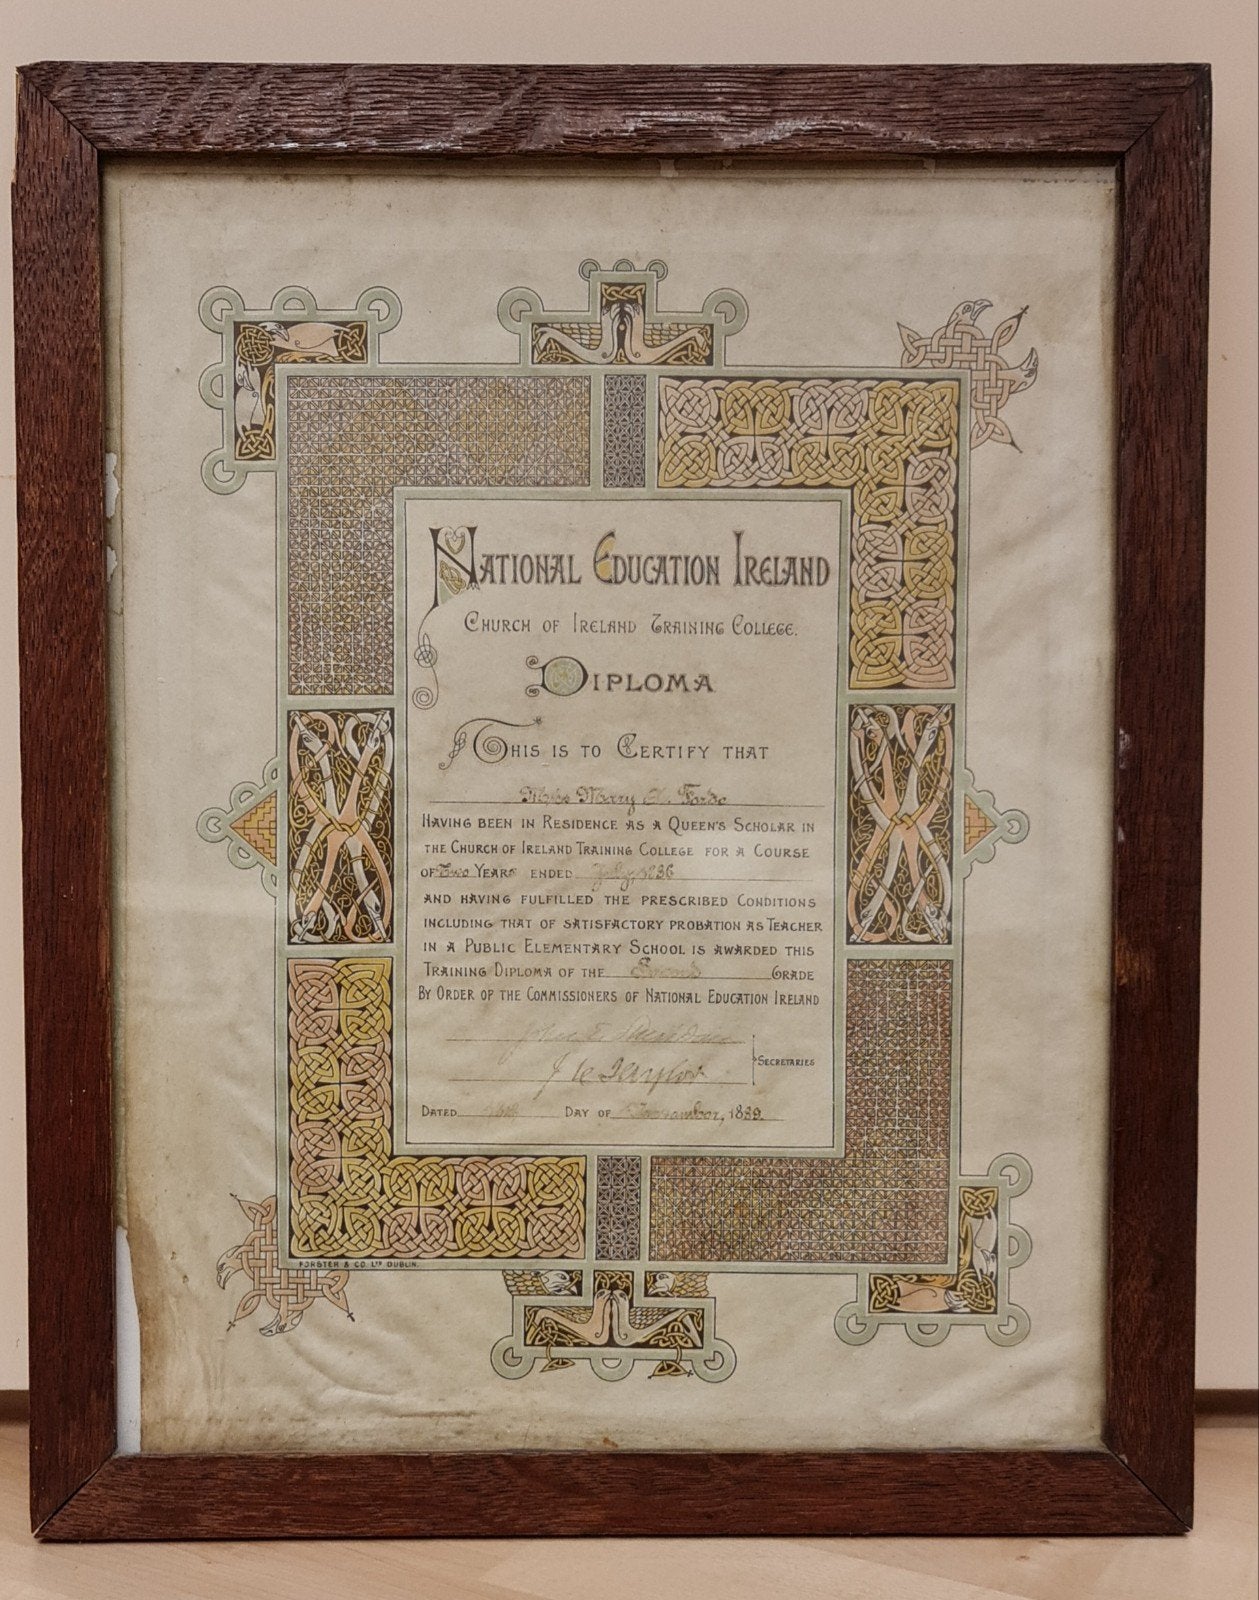 NATIONAL EDUCATION IRELAND
CHURCH OF IRELAND TRAINING COLLEGE.
DIPLOMA
THIS IS TO CERTIFY THAT
Miss Mary A. Forde
HAVING BEEN IN RESIDENCE AS A QUEEN'S SCHOLAR IN
THE CHURCH OF IRELAND TRAINING COLLEGE FOR A COURSE
OF Two YEARS ENDED July, 1886
AND HAVING FULFILLED THE PRESCRIBED CONDITIONS
INCLUDING THAT OF SATISFACTORY PROBATION AS TEACHER
IN A PUBLIC ELEMENTARY SCHOOL IS AWARDED THIS
TRAINING DIPLOMA OF THE Second GRADE
BY ORDER OF THE COMMISSIONERS OF NATIONAL EDUCATION IRELAND
John E.
J C Taylor
SECRETARIES
DATED DAY OF November, 1889.
FORSTER & CO. LTD DUBLIN.